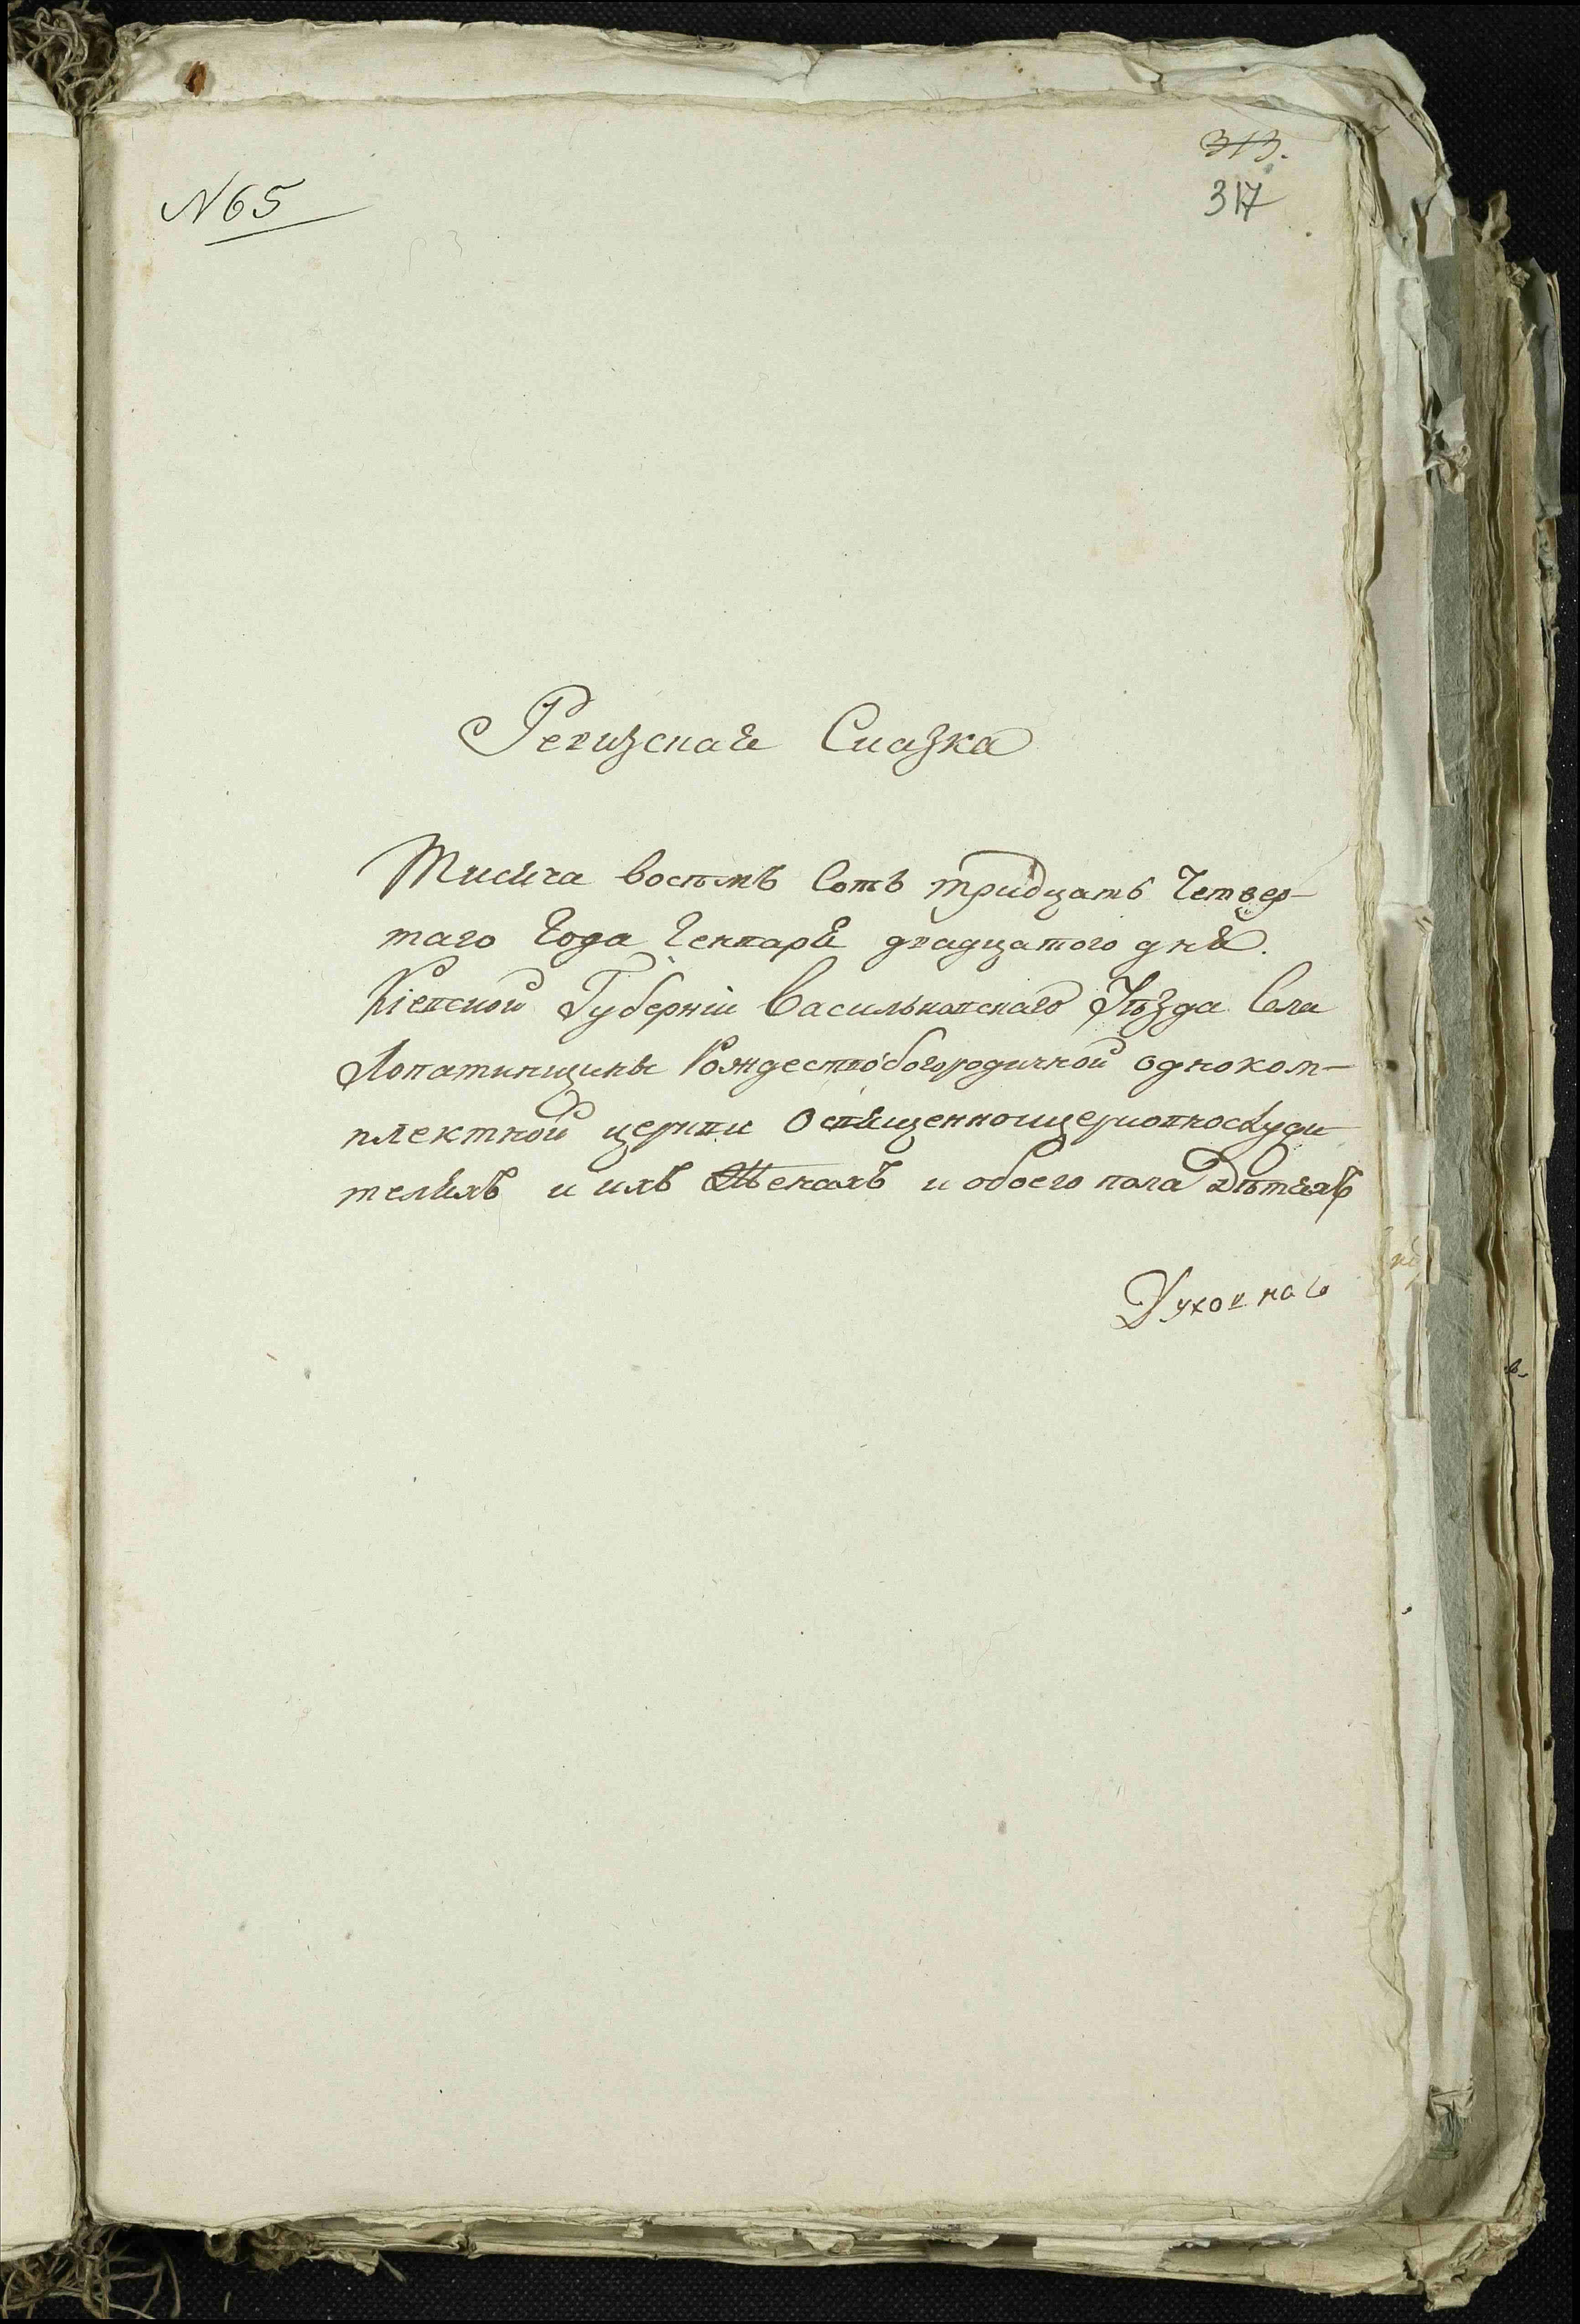 313.
N 65
317
Ревизская Сказка
Тисяча восемъ Сотъ тридцать Четвер-
таго Года Генваря двадцатого дня.
Кіевской Губерніи Васильковскаго Уѣзда Села
Лопатинщины Рождествобогородичной одноком-
плектной церкви О священноицерковнослужи
теляхъ и ихъ Женахъ и обоего пола Дѣтяхъ
Духовнаго